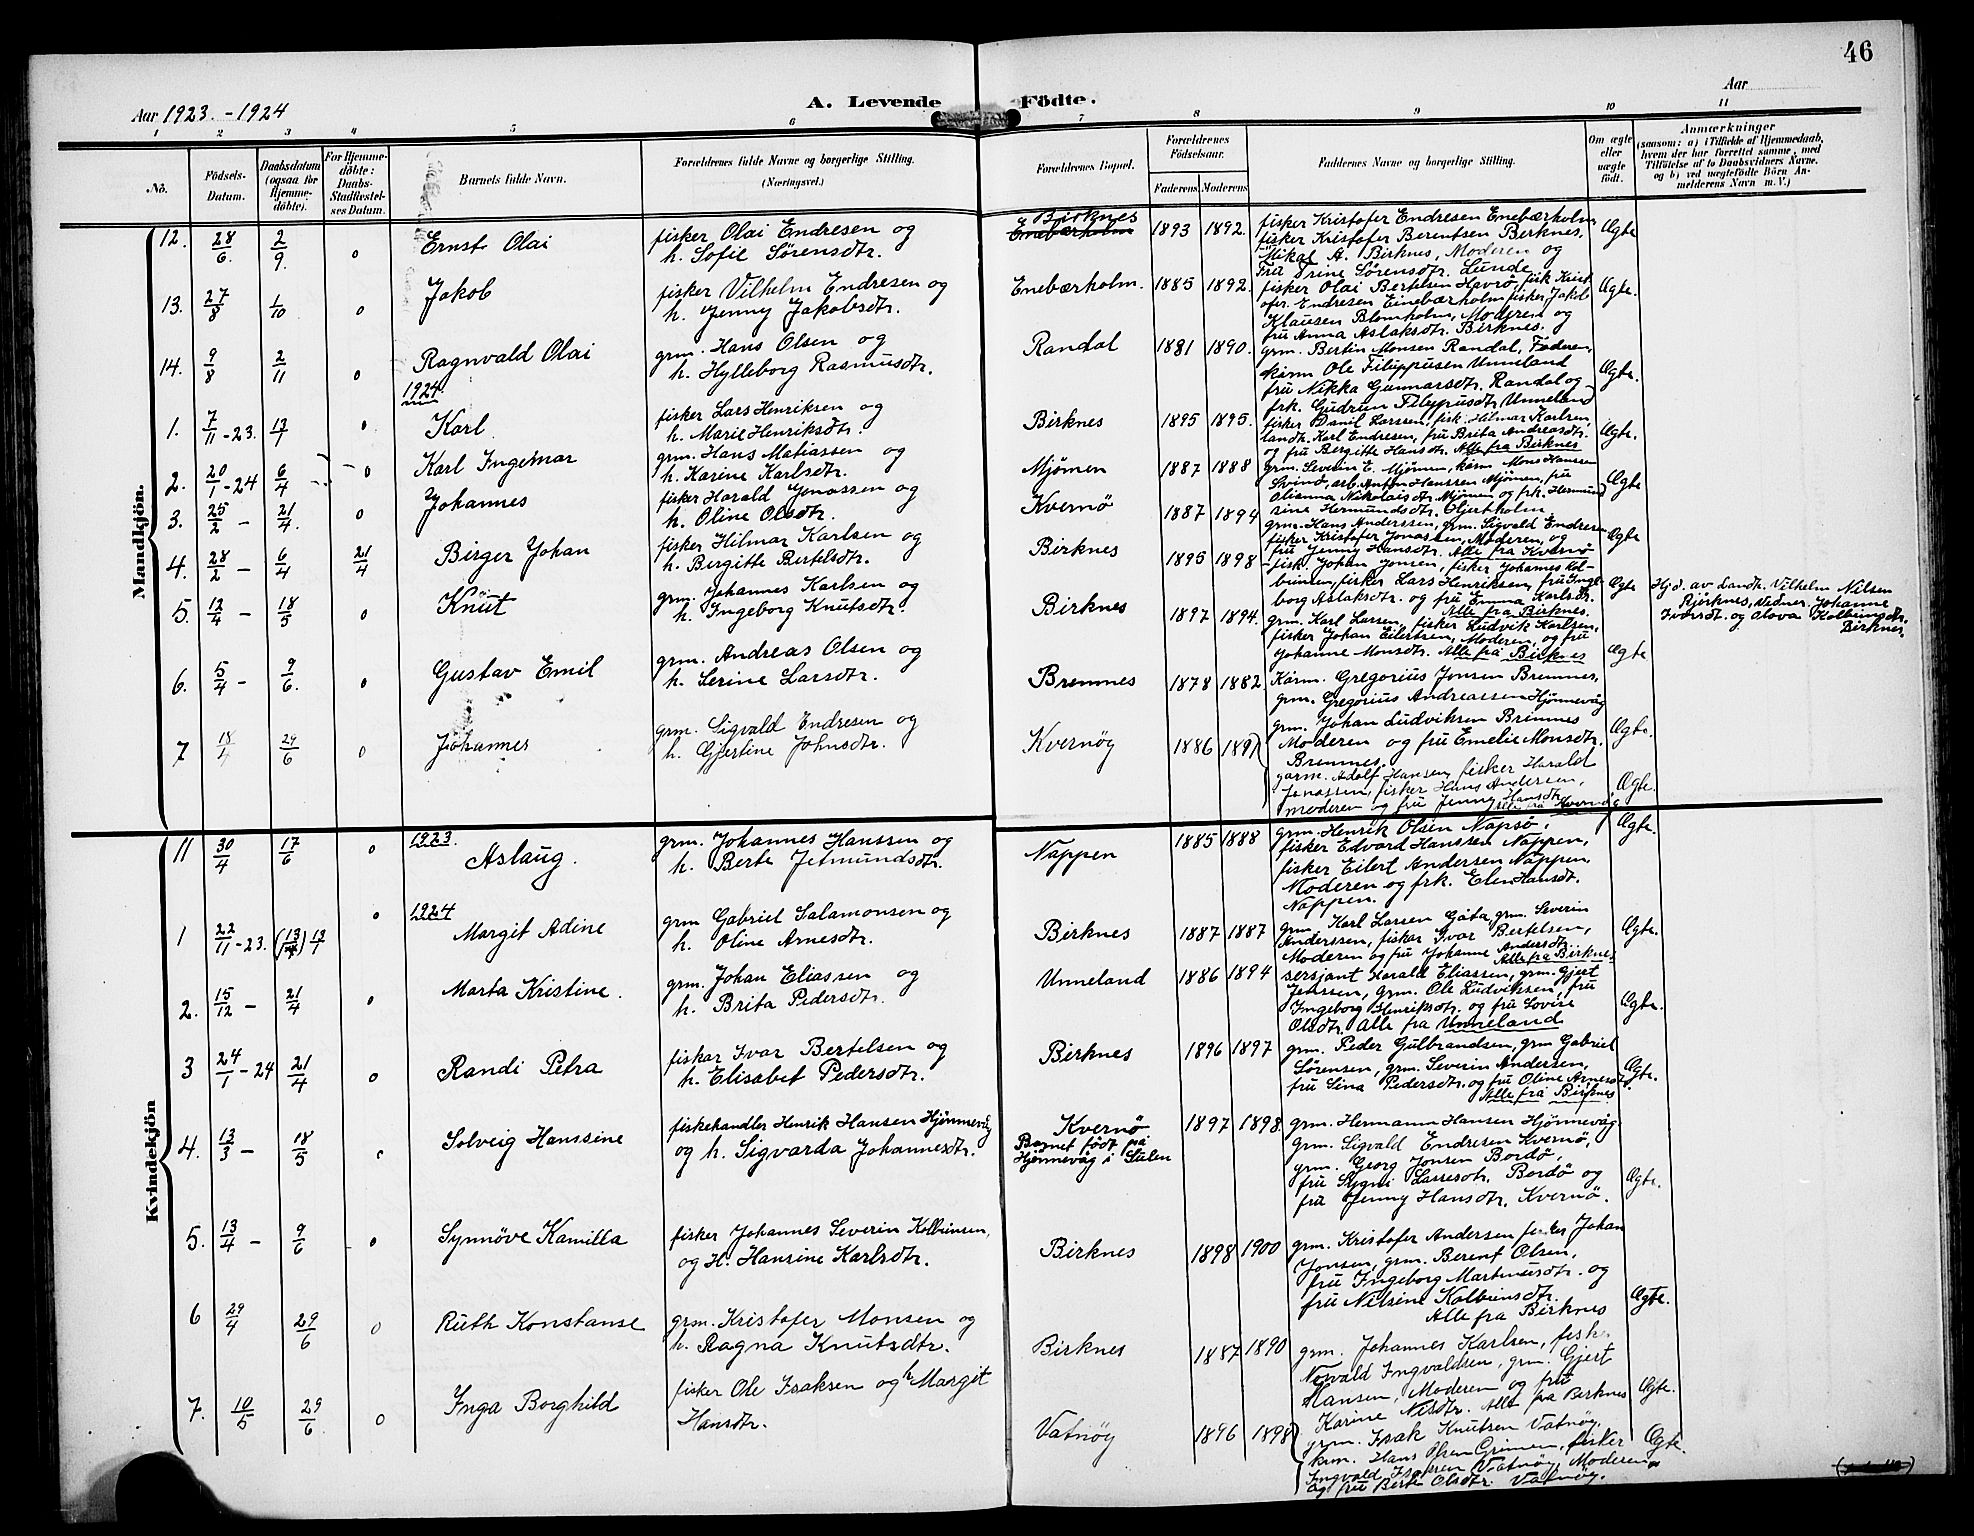 46
Aar 1923.-1924
A. Levende Födte.
Aar
1 2 3 4 5 6 7 8 9 10 11
No.
Födsels-
Datum.
Daabsdatum
(ogsaa for
Hjemme-
döbte).
For Hjemme-
döbte:
Daabs-
Stadfæstel-
ses Datum.
Barnets fulde Navn.
Forældrenes fulde Navne og borgerlige Stilling.
(Næringsvei.)
Forældrenes Bopæl.
Forældrenes
Födselsaar.
Faderens Moderens
Faddernes Navne og borgerlige Stilling.
Om ægte
eller
uægte
födt.
Anmærkninger
(saasom: a) i Tilfælde af Hjemmedaab,
hvem der har forrettet samme, med
Tilföielse af to Daabsvidners Navne.
og b) ved uægtefödte Börn An-
melderens Navn m. V.)
Mandkjön.
12. 28/6. 2/9. 0 Ernst Olai
fisker Olai Endresen og
h. Sofie Sørensdtr.
Birknes
Enebærholm 1893 1892.
fisker Kristofer Endresen Enebærholm
fisker Kristofer Berentsen Birknes,
Mikal A. Birknes, Moderen og
Fru Trine Sørensdtr. Lunde
Ægte
13. 27/8 1/10 0 Jakob
fisker Vilhelm Endresen og
h. Jenny Jakobsdtr.
Enebærholm. 1885 1892.
fisker Olai Bertelsen Havrø, fisk Krist
ofer Endresen Einebærholm fisker Jakob
Klausen Blomholm, Moderen og
fru Anna Aslaksdtr. Birknes.
Ægte.
14. 9/8 2/11 0 Ragnvald Olai
grm. Hans Olsen og
h. Hylleborg Rasmusdtr.
Randal 1881 1890.
grm. Bertin Monsen Randal, Faderen,
kårm Ole Filippusen Unneland
fru Nikka Gunnarsdtr. Randal og
frk. Gudrun Filippusdtr. Unneland
Ægte.
1924
1. 7/11-23. 13/1 0 Karl
fisker Lars Henriksen og
h. Marie Henriksdtr.
Birknes 1895 1895.
fisker Danil Larssen, fisk. Hilmar Karlsen
landh. Karl Endresen, fru Brita Andreasdtr.
og fru Bergitte Hansdtr. Alle fra Birknes
Ægte.
2. 20/1-24 6/4 0 Karl Ingemar
grm. Hans Matiassen og
h. Karine Karlsdtr.
Mjømen 1887 1888
grm. Severin E. Mjømen, kårm Mons Hanssen
Svind, arb. Anton Hanssen Mjømen, fru
Olianna Nikolaisdtr. Mjømen og frk. Hermund
sine Hermundsdtr. Gjertholm
Ægte
3. 25/2 - 21/4. 0 Johannes
fisker Harald Jonassen og
h. Oline Olsdtr.
Kvernø 1887 1894
grm. Hans Anderssen, grm. Sigvald Endresen
fisker Kristofer Jonassen, Moderen, og
fru Jenny Hansdtr. Alle fra Kvernø
Ægte
4. 28/2 - 6/4 21/4 Birger Johan
fisker Hilmar Karlsen og
h. Bergitte Bertelsdtr.
Birknes 1895 1898
fisk. Johan Jonsen, fisker Johannes Kol-
beinsen, fisker Lars Henriksen, fru Inge-
borg Aslaksdtr. og fru Emma Karlsdtr.
Alle fra Birknes.
Ægte
Hj.d. av Landh. Vilhelm Nilsen
Birknes, Vidner Johanne
Iversdt. og Olova Kolbeinsdtr.
Birknes.
5. 12/4 - 18/5 0 Knut
grm. Johannes Karlsen og
h. Ingeborg Knutsdtr.
Birknes 1897 1894.
grm. Karl Larsen, fisker Ludvik Karlsen,
fisker Johan Eilertsen, Moderen, og fru
Johanne Monsdtr. Alle fra Birknes
Ægte
6. 5/4 - 9/6. 0 Gustav Emil
grm. Andreas Olsen og
h. Serine Larsdtr.
Bremnes 1878 1882
Kårm. Gregorius Jonsen Bremnes,
grm. Gregorius Andreassen Hjønnevåg
grm. Johan Ludviksen Brimnes
Moderen og fru Emelie Monsdtr.
Bremnes.
Ægte.
7 18/4 29/6 0 Johannes
grm. Sigvald Endresen og
h. Gjertine Johnsdtr.
Kvernøy 1886 1891
garm. Adolf Hansen, fisker Harald
Jonassen, fisker Hans Andersen,
moderen og fru Jenny Hansdtr.
alle fra Kvernø
Ægte.
Kvindekjön
1923.
11 30/4 17/6 0 Aslaug.
grm. Johannes Hanssen og
h. Berte Jetmundsdtr.
Nappen 1885 1888
grm. Henrik Olsen Napsø,
fisker Edvard Hanssen Nappen,
fisker Eilert Andersen Nappen
Moderen og frk. Elen Hansdt.
Nappen.
Ægte.
1924
1 22/11-23. (13/4) 13/1 0 Margit Adine
grm Gabriel Salamonsen og
h. Oline Arnesdtr.
Birknes 1887 1887
grm. Karl Larsen Gåta, grm. Severin
Anderssen, fisker Ivar Bertelsen,
Moderen og fru Johanne Andersdtr.
Alle fra Birknes
Ægte.
2. 15/12 - 21/4 0 Marta Kristine.
grm. Johan Eliassen og
h. Brita Pedersdtr.
Unneland 1886 1894
sersjant Harald Eliassen, grm. Gjert
Jenssen, grm. Ole Ludvikssen, fru
Ingeborg Henriksdtr. og fru Lovise
Olsdtr. Alle fra Unneland
Ægte.
3 24/1-24 21/4 0 Randi Petra
fisker Ivar Bertelsen og
h. Elisabet Pedersdtr.
Birknes 1896 1897
grm. Peder Gulbrandsen, grm Gabriel
Sørensen, grm. Severin Andersen,
fru Lina Pedersdtr. og fru Oline Arnesdtr.
Alle fra Birknes
Ægte.
4. 13/3 - 18/5 0 Solveig Hanssine
fiskehandler Henrik Hansen Hjønnevåg
og h. Sigvarda Johannesdtr.
Kvernø
Barnet født på
Hjønnevåg i Sulen
1897 1898
grm. Hermann Hansen Hjønnevåg
grm. Sigvald Endresen Kvernø,
grm. Georg Jonsen Bordø,
fru Sygni Lassesdtr. Bordø og
fru Jenny Hansdtr. Kvernø.
Ægte.
5. 13/4 - 9/6 0 Synnøve Kamilla
fisker Johannes Severin Kolbeinsen,
og H. Hansine Karlsdtr.
Birknes 1898 1900
grm. Kristofer Andersen fisker Johan
Jonsen, grm. Berent Olsen,
fru Ingeborg Martinusdtr. og
fru Nilsine Kolbeinsdtr.
Alle fra Birknes
Ægte.
6 29/4 29/6 0 Ruth Konstanse
grm. Kristofer Monsen og
h. Ragna Knutsdtr.
Birknes 1887 1890
grm. Johannes Karlsen, fisk.
Norvald Ingvaldsen, grm. Gjert
Hansen, Moderen og fru
Karine Nilsdtr. Alle fra Birknes
Ægte.
7. 10/5 29/6 0 Inga Borghild
fisker Ole Isaksen og h Margit
Hansdtr.
Vatnøy 1896 1898
grm. Isak Knutsen Vatnøy,
krm. Hans Olsen Grimen, fisker
Ingvald Isaksen Vatnøy, Moderen
og fru Berte Olsdtr. Vatnøy.
Ægte.